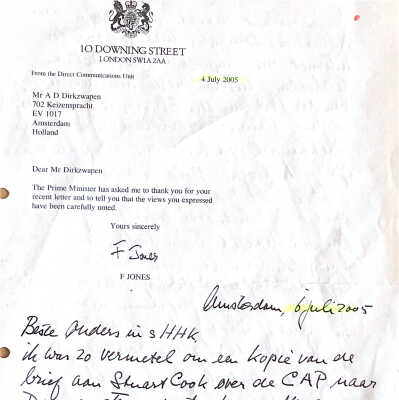 10 DOWNING STREET
LONDON SW1A 2AA
From the Direct Communications Unit
4 July 2005
Mr A D Dirkzwapen
702 Keizenspracht
EV 1017
Amsterdam
Holland
Dear Mr Dirkzwapen
The Prime Minister has asked me to thank you for your
recent letter and to tell you that the views you expressed
have been carefully noted.
Yours sincerely
F Jones
F JONES
Amsterdam, 6 juli 2005
Beste Anders in sHHK
ik was zo vermetel om een kopie van de
brief aan Stuart Cook over de CAP naar